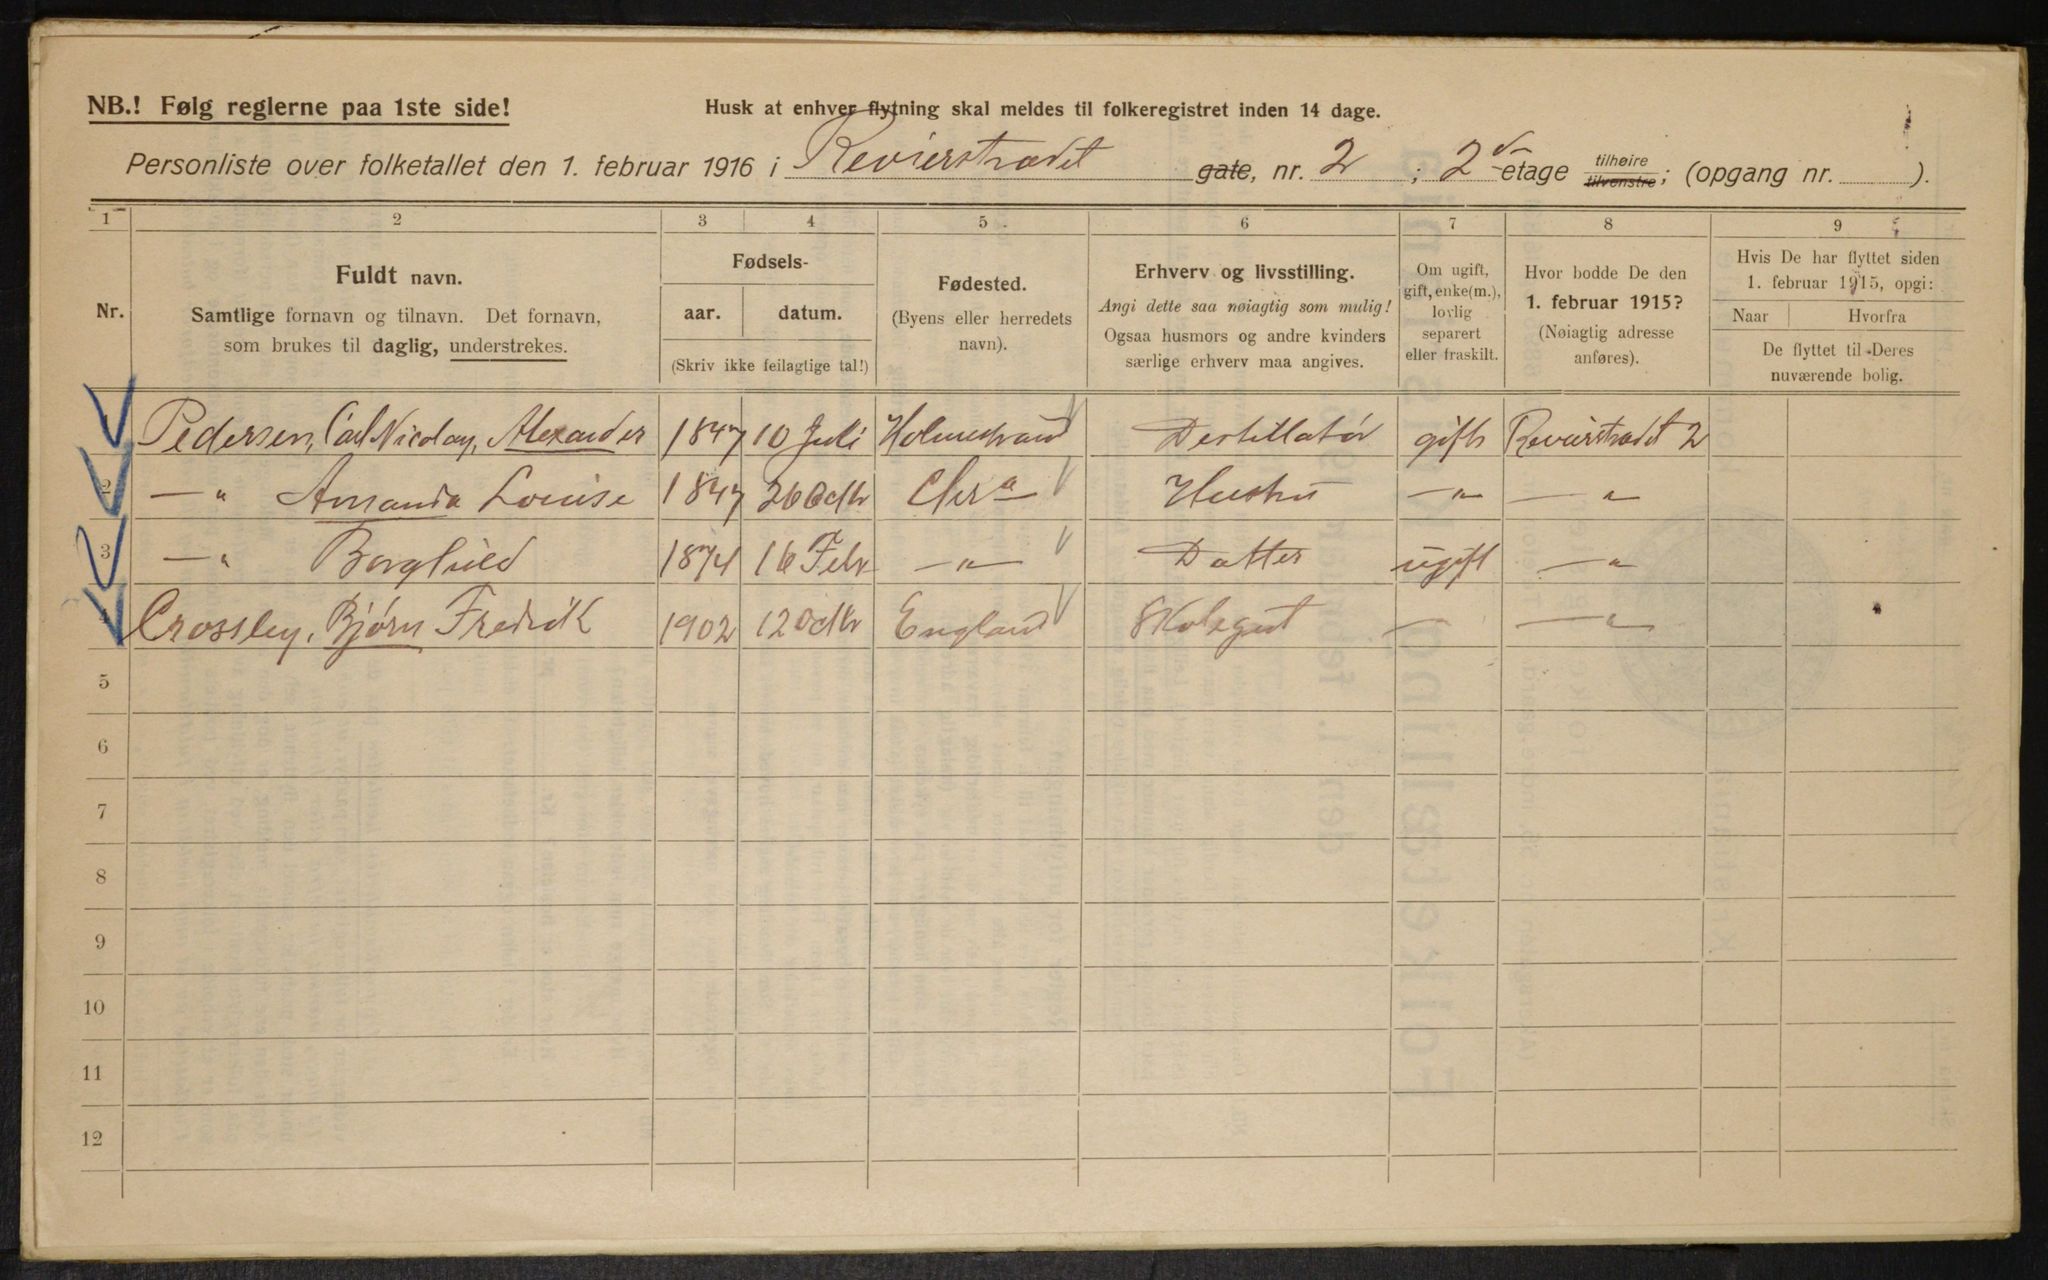 NB.! Følg reglerne paa 1ste side! Husk at enhver flytning skal meldes til folkeregistret inden 14 dage.
Personliste over folketallet den 1. februar 1916 i Revierstrædet gate, nr. 2 ; 2den etage tilhøire tilvenstre; (opgang nr. ).
1 2 3 4 5 6 7 8 9
Nr.
Fuldt navn.
Samtlige fornavn og tilnavn. Det fornavn,
som brukes til daglig, understrekes.
Fødsels-
aar. datum.
(Skriv ikke feilagtige tal!)
Fødested.
(Byens eller herredets
navn).
Erhverv og livsstilling.
Angi dette saa nøiagtig som mulig!
Ogsaa husmors og andre kvinders
særlige erhverv maa angives.
Om ugift,
gift, enke(m.),
lovlig
separert
eller fraskilt.
Hvor bodde De den
1. februar 1915?
(Nøiagtig adresse
anføres).
Hvis De har flyttet siden
1. februar 1915, opgi:
Naar Hvorfra
De flyttet til Deres
nuværende bolig.
1 Pedersen, Carl Nicolay, Alexander 1847 10 Juli Holmestrand Destillatør gift Revierstrædet 2
2 —„ Amanda Louise 1847 26 Oktbr Chr.a Hustru —„ —„
3 —„ Borghild 1874 16 Febr —„— Datter ugift —„
4 Crossley, Bjørn Fredrik 1902 12 Oktbr England Skolegut — —„—
5
6
7
8
9
10
11
12